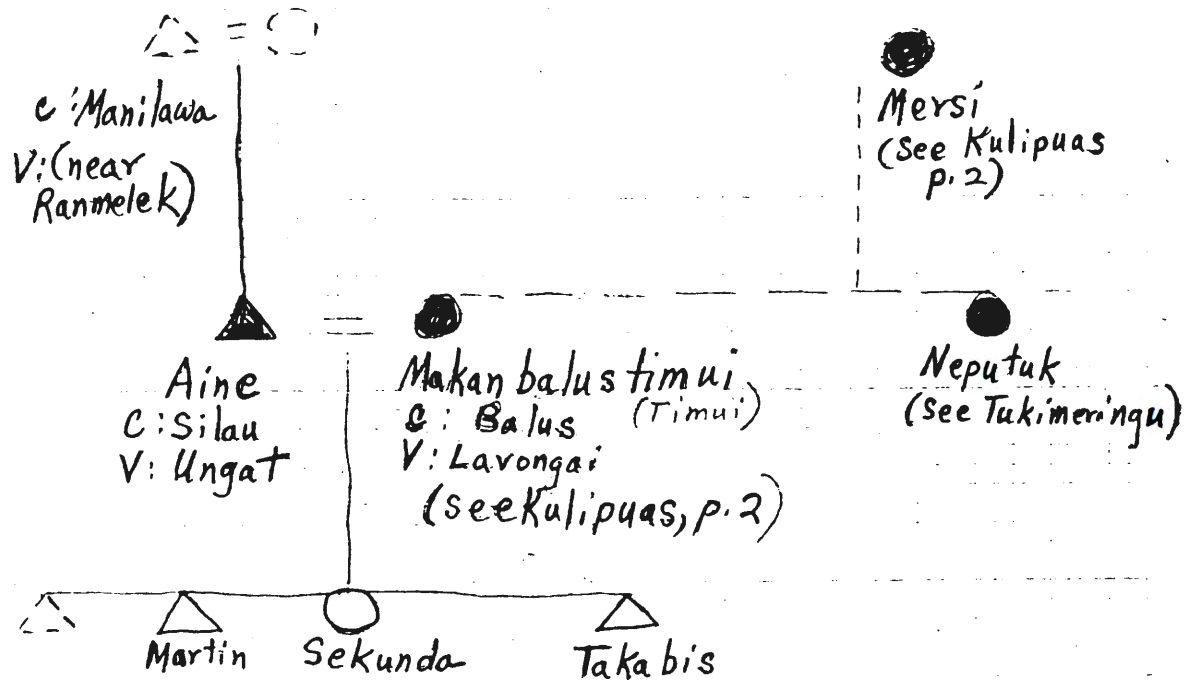 C: Manilawa
V: (near
Ranmelek)
Mersi
(See Kulipuas
p. 2)
Aine
C: Silau
V: Ungat
Makan balus timui
(Timui)
C: Balus
V: Lavongai
(See Kulipuas, p. 2)
Neputuk
(See Tukimeringu)
Martin
Sekunda
Takabis